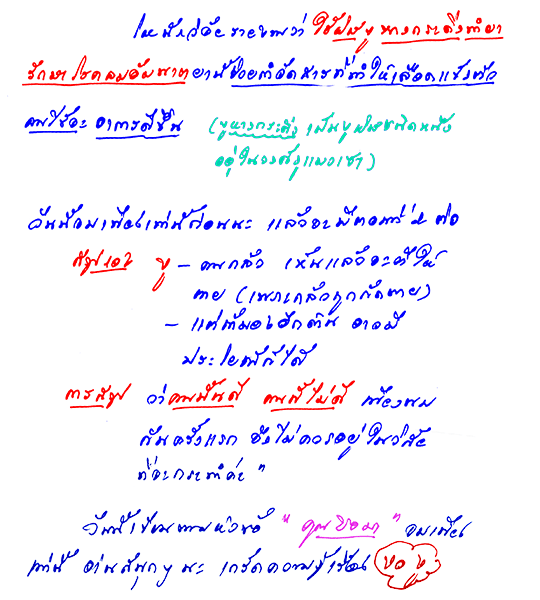 ใหม่นักวิจัยรายงานว่า ใช้พิษงูหางกระดิ่งทำยา
รักษาโรคลมอัมพาต ยานี้ช่วยกำจัดสารที่ทำให้เลือดแข็งตัว
คนไข้จะอาการดีขึ้น (งูหางกระดิ่ง เป็นงูพิษชนิดหนึ่ง
อยู่ในวงศ์งูแมวเซา)
วันนี้ขอเพียงเท่านี้ก่อนนะ แล้วจะมีตอนที่ 2 ต่อ
งู – คนกลัว เห็นแล้วจะตีให้
ตาย (เพราะกลัวถูกกัดตาย)
– แต่ถ้ามองอีกด้าน อาจมี
ประโยชน์ได้
การสรุป ว่าคนนั้นดี คนนี้ไม่ดี เพียงพบ
กันครั้งแรก จึงไม่ควรอยู่ในวิสัย
ที่จะกระทำค่ะ"
วันนี้เขียนตามหัวข้อ "คุณขอมา" จบเพียง
เท่านี้ อ่านสนุกๆ นะ เกร็ดความรู้เรื่อง ของงู